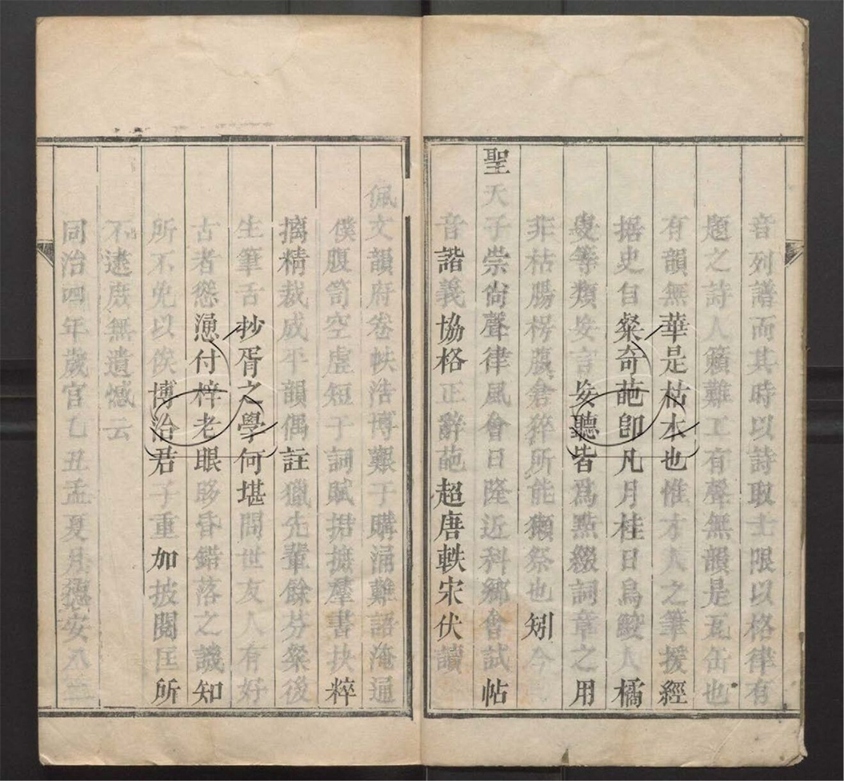 音列譜而其時以詩取士限以格律有
題之詩人籟難工有聲無韻是瓦缶也
有韻無華是枯木也惟才人之筆援經
据史白粲奇葩卽凡月桂日烏鮫人橘
叟等類妄言妄聽皆爲點綴詞章之用
非枯腸楞腹倉猝所能獺祭也矧今
聖天子崇尙聲律風會日隆近科鄉會試帖
音諧義協格正辭葩超唐軼宋伏讀
佩文韻府卷帙浩博艱于購涌難語淹通
僕腹笥空虛短于詞賦捃摭羣書抉粹
摘精裁成平韻偶註獵先輩餘芬粲後
生筆舌抄胥之學何堪問世友人有好
古者慫慂付梓老眼眵昏錯落之譏知
所不免以俟博洽君子重加披閱匡所
不逮庶無遺憾云
同治四年歲官乙丑孟夏月德安八